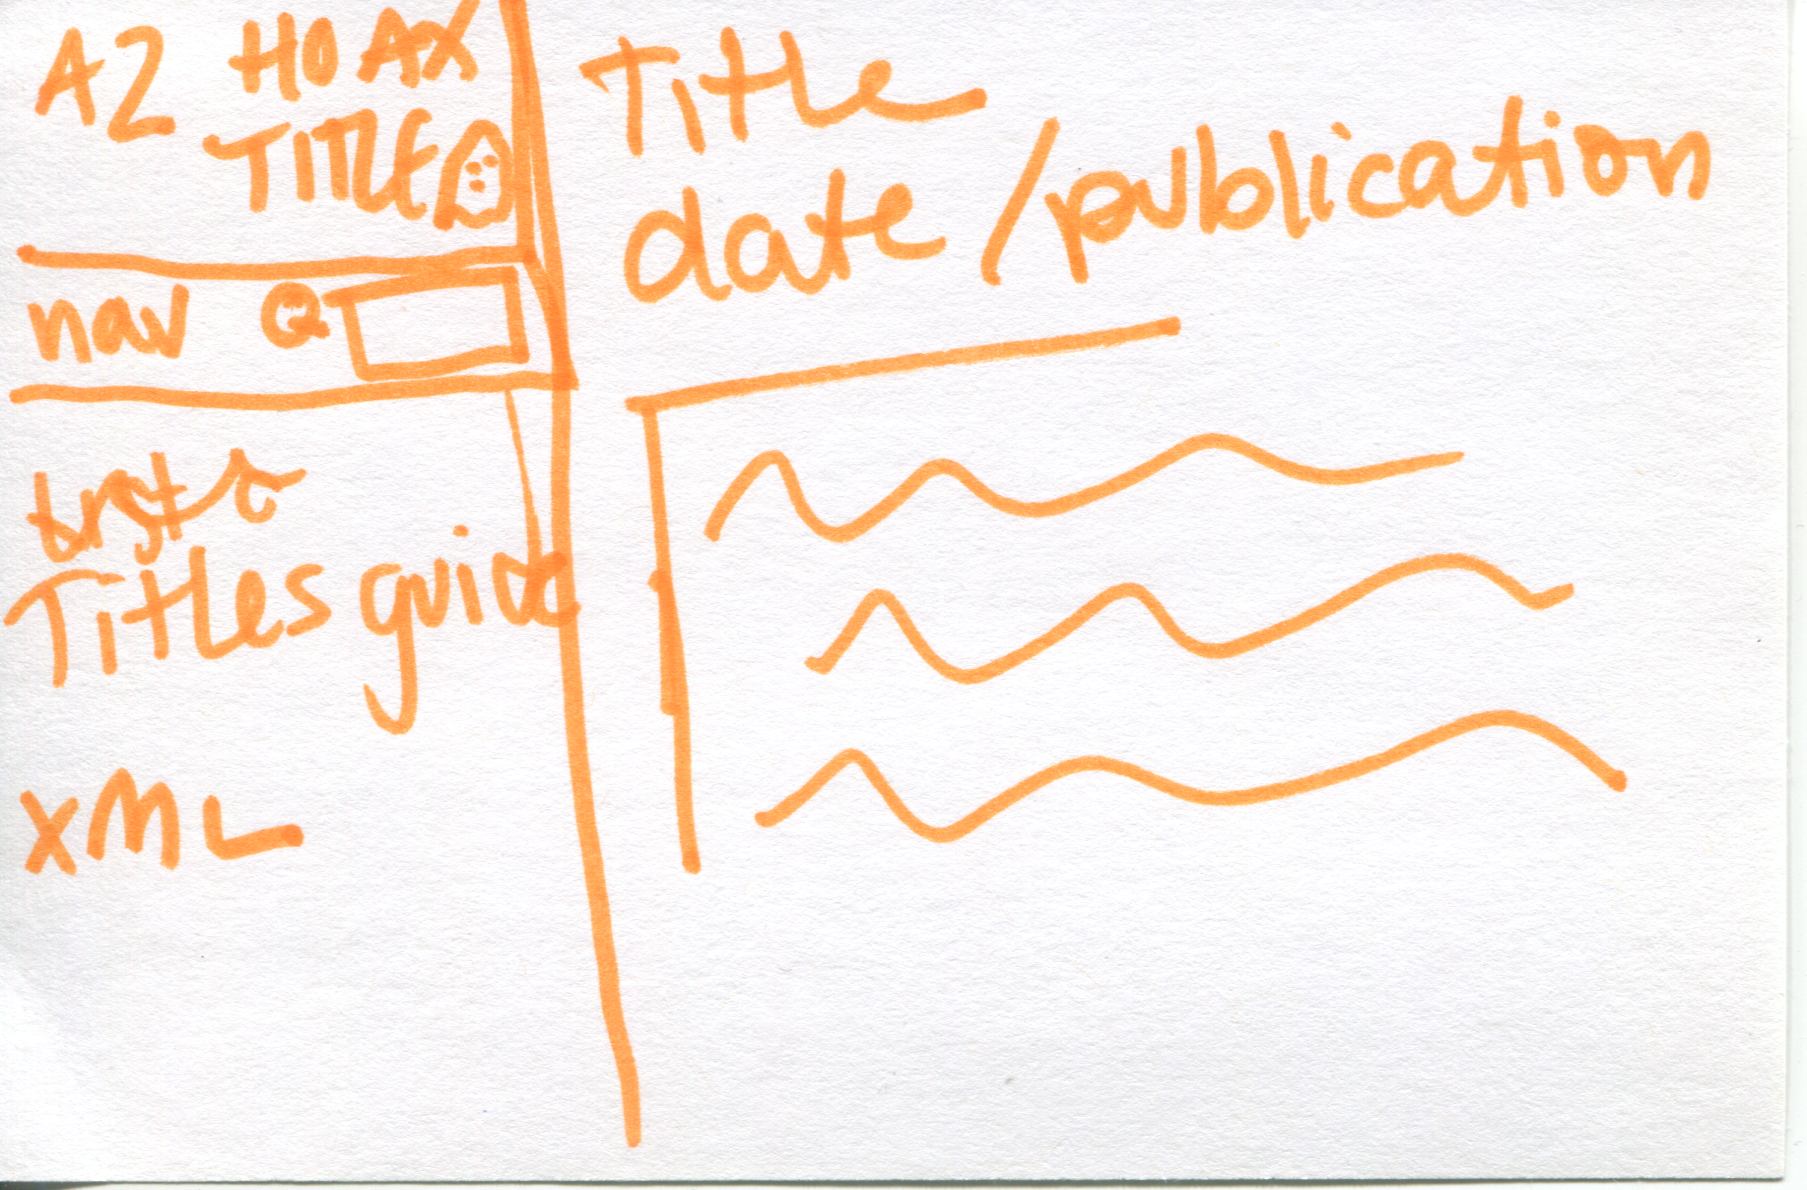 A2 HOAX
TITLE
nav
Titles guide
XML
Title
date/publication